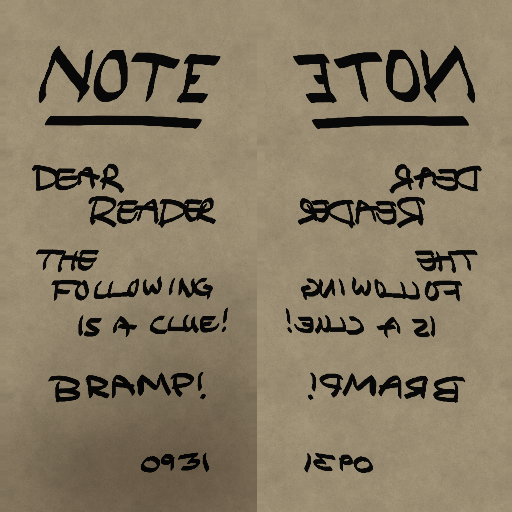 NOTE
DEAR
READER
THE
FOLLOWING
IS A CLUE!
BRAMP!
0931
NOTE
DEAR
READER
THE
FOLLOWING
IS A CLUE!
BRAMP!
0931